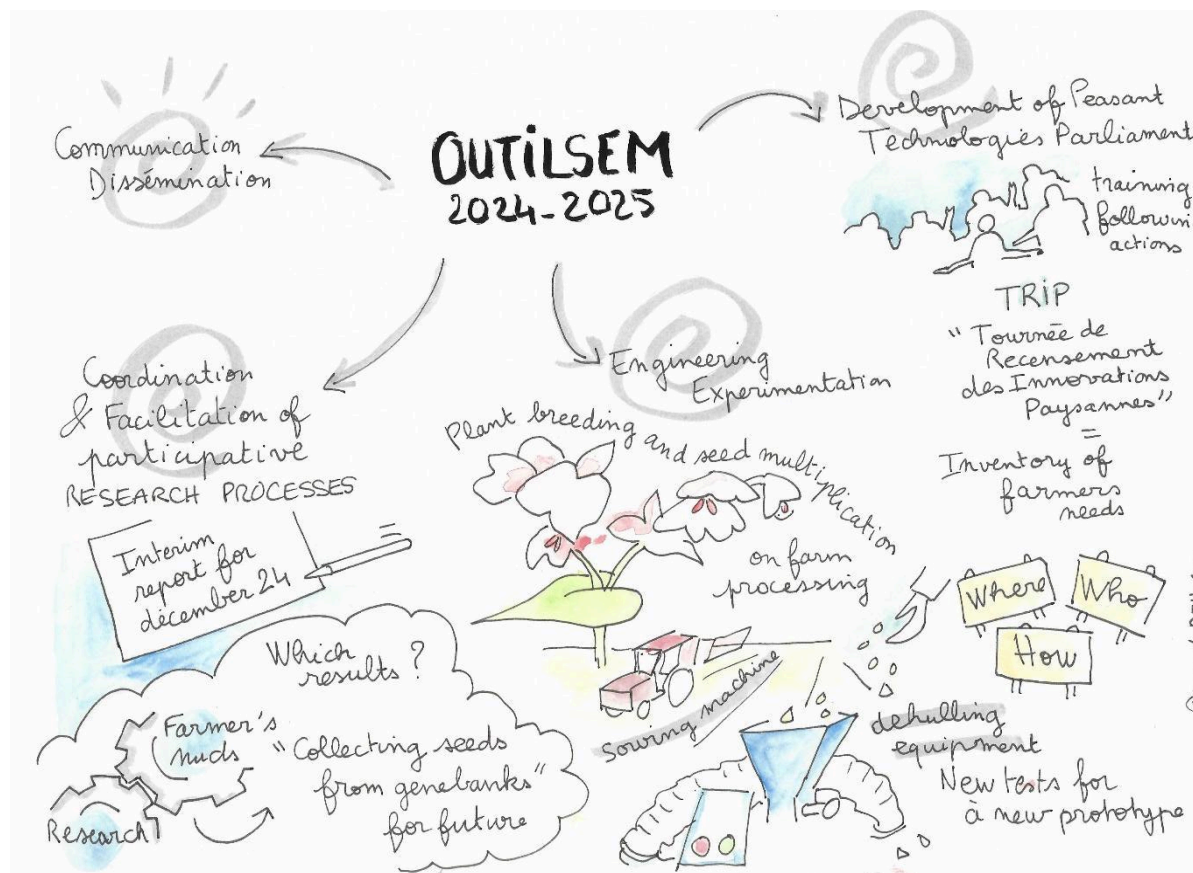 OUTILSEM
2024-2025
Communication
Dissémination
Development of Peasant
Technologies Parliament
training
followin
actions
TRIP
"Tournée de
Recensement
des Innovations
Paysannes"
=
Inventory of
farmers
needs
Where
Who
How
Coordination
& Facilitation of
participative
RESEARCH PROCESSES
Interim
report for
décember 24
Which
results ?
Farmer's
nuds
Research
"Collecting seeds
from genebanks"
for future
Engineering
Experimentation
Plant breeding and seed multiplication
on farm
processing
sowing machine
dehulling
equipment
New tests for
à new prototype